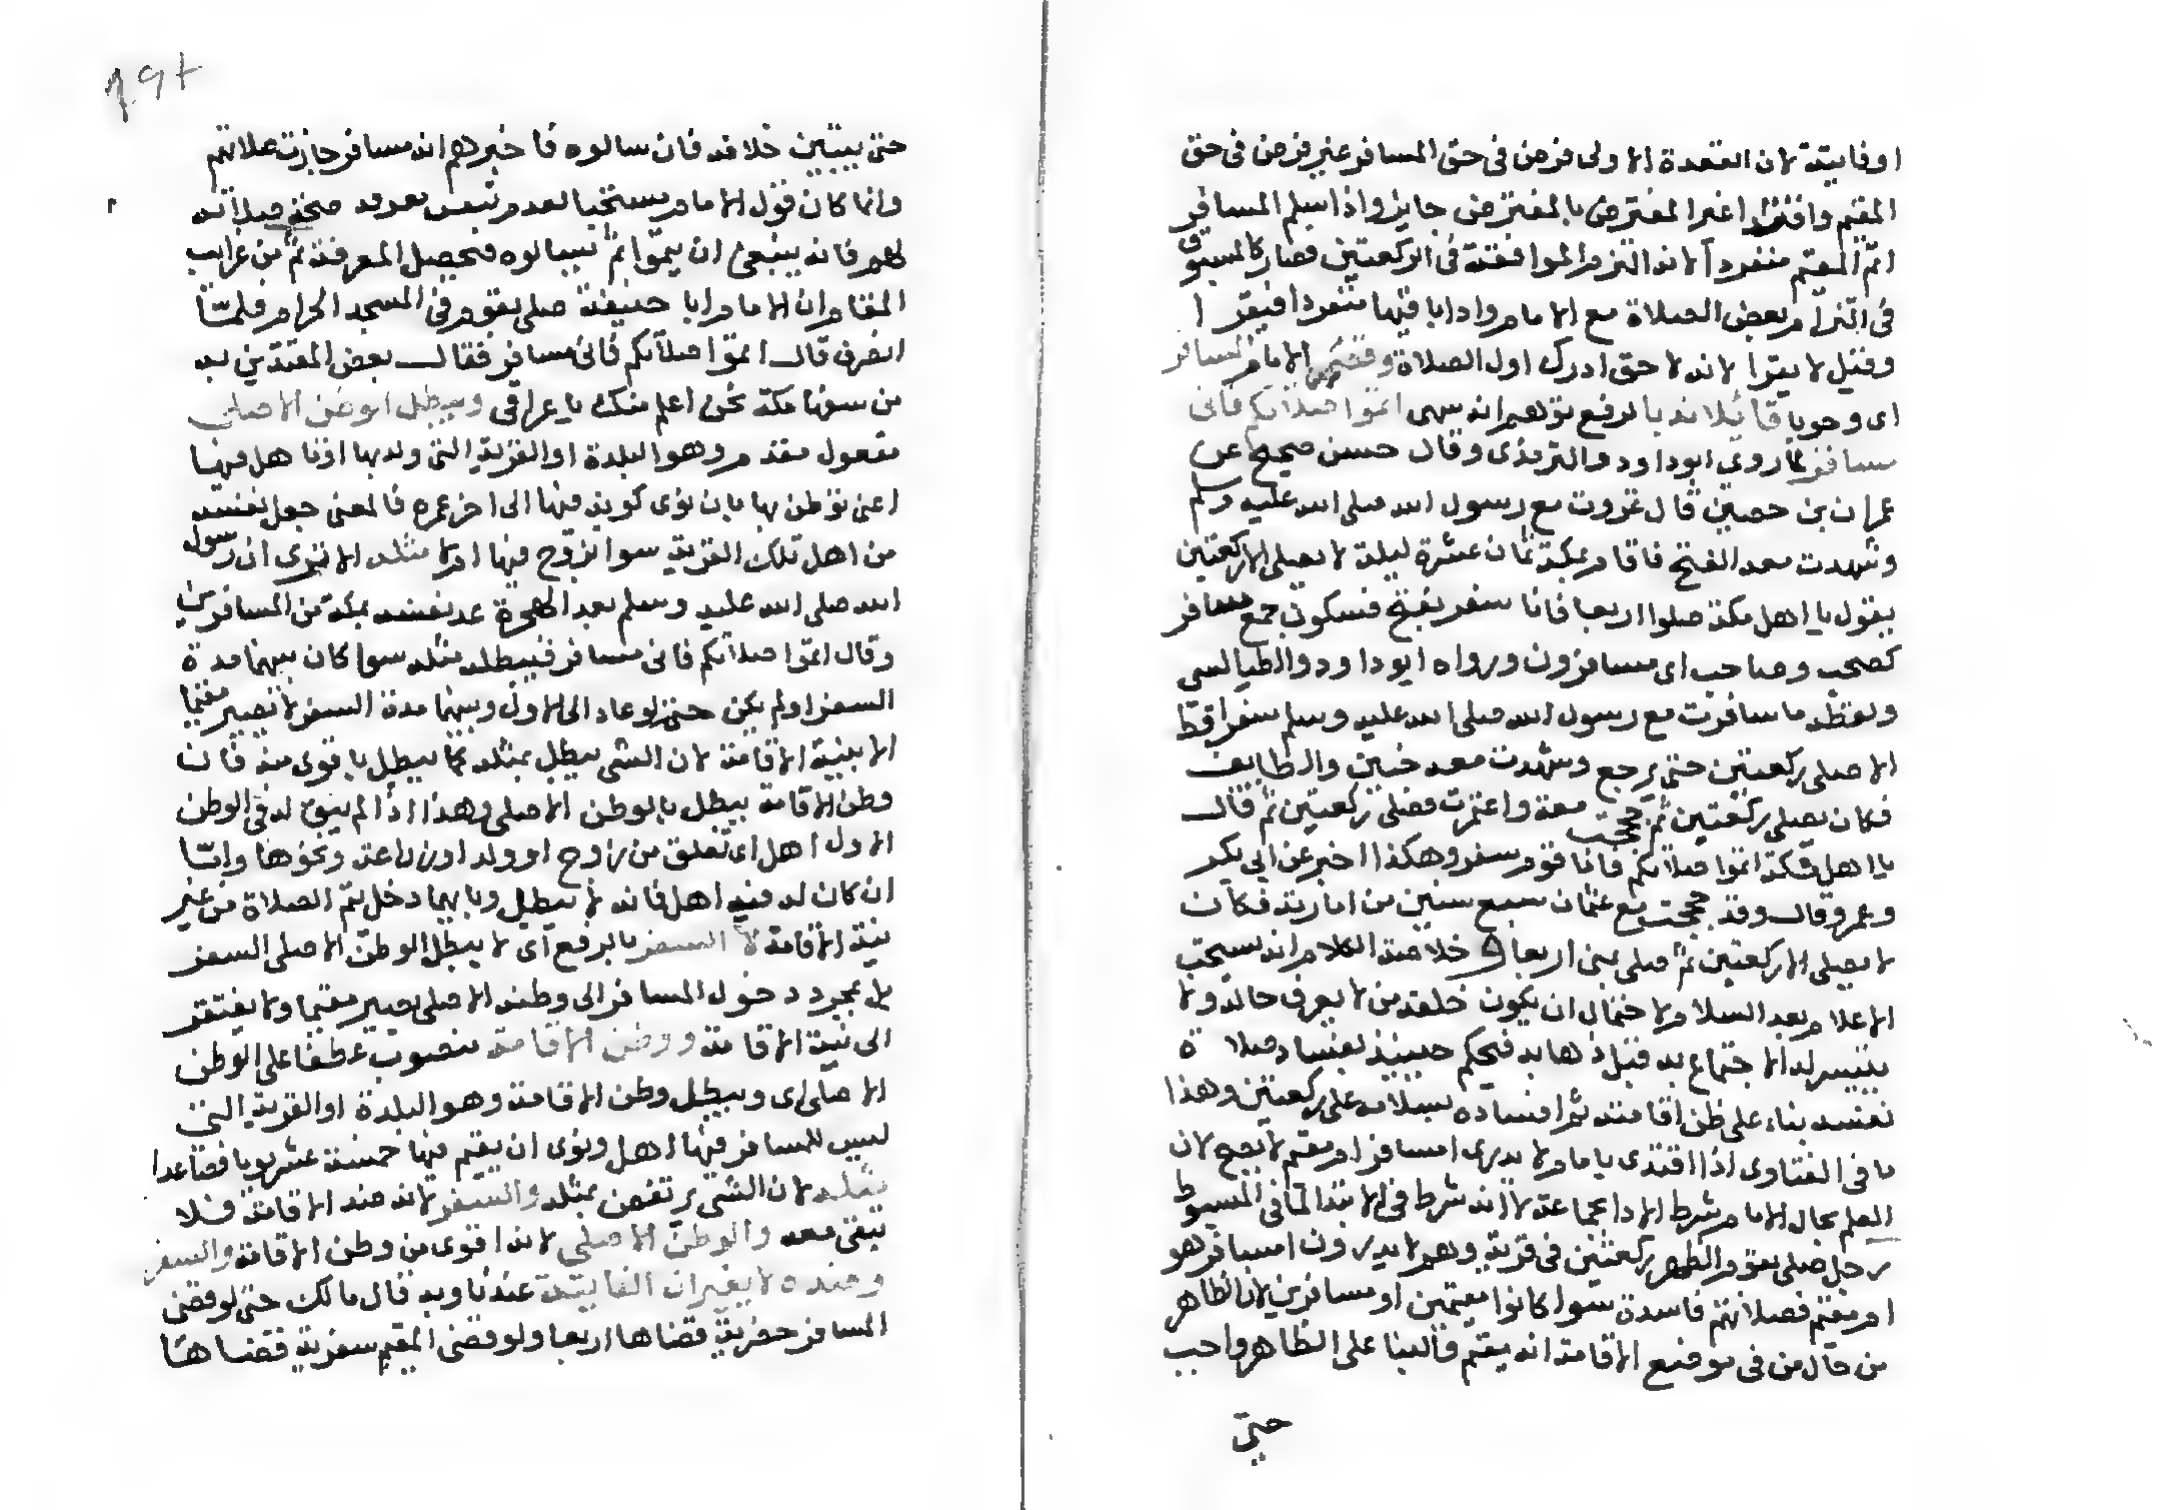 او فايتة لان القعدة الاولى فرض فى حق المسافر غير فرض فى حق
المقيم واقتدا غير المفترض بالمفترض جايز واذا سلم المسافر
اتم المقيم منفردا لانه التزم الموافقة فى الركعتين فصار كالمسبوق
فى التزام بعض الصلاة مع الامام واداء باقيها منفردا فيقرا
وقيل لا يقرا لانه لاحق ادرك اول الصلاة وقول الامام المسافر
اى وجوبا قائلا ندبا لرفع توهم انه سهى اتموا صلاتكم فانى
مسافر لما روى ابو داود والترمذى وقال حسن صحيح عن
عمران بن حصين قال غزوت مع رسول الله صلى الله عليه وسلم
وشهدت معه الفتح فاقام بمكة ثمان عشرة ليلة لا يصلى الا ركعتين
يقول يا اهل مكة صلوا اربعا فانا سفر بفتح فسكون جمع مسافر
كصحب وصاحب اى مسافرون ورواه ابو داود والطيالسى
ولفظه ما سافرت مع رسول الله صلى الله عليه وسلم سفرا قط
الا صلى ركعتين حتى يرجع وشهدت معه حنين والطايف
فكان يصلى ركعتين ثم حججت معه واعتمرت فصلى ركعتين ثم قال
يا اهل مكة اتموا صلاتكم فانا قوم سفر وهكذا اخبر عن ابى بكر
وعمر وقال وقد حججت مع عثمان سبع سنين من امارته فكان
لا يصلى الا ركعتين ثم صلى بمنى اربعا ه وخلاصة الكلام انه يستحب
الاعلام بعد السلام لاحتمال ان يكون خلفه من لا يعرف حاله ولا
يتيسر له الاجتماع به قبل ذهابه فيحكم حينيذ بفساد صلاة
نفسه بناء على ظن اقامته ثم افساده بسلامه على ركعتين وهذا
ما فى الفتاوى اذا اقتدى بامام لا يدرى امسافر ام مقيم لا يصح لان
العلم بحال الامام شرط الادا بجماعة لا انه شرط فى الابتدا لما فى المبسوط
رجل صلى بقوم الظهر ركعتين فى قرية وهم لا يدرون امسافر هو
ام مقيم فصلاتهم فاسدة سوا كانوا مقيمين او مسافرين لان الظاهر
من حال من فى موضع الاقامة انه مقيم فالبنا على الظاهر واجب
حتى
حتى يتبين خلافه فان سالوه فاخبرهم انه مسافر جازت صلاتهم
وانما كان قول الامام مستحبا لعدم تعين بعد صحة صلاته
لهم فانه ينبغى ان يتموا ثم يسالوه فتحصل المعرفة ثم من غرايب
المقام ان الامام ابا حنيفة صلى بقوم فى المسجد الحرام فلما
انصرف قال اتموا صلاتكم فانى مسافر فقال بعض المقتدين به
من سفها مكة نحن اعلم منك يا عراقى ويبطل الوطن الاصلى
مفعول مقدم وهو البلدة او القرية التى ولد بها او تاهل فيها
اعنى توطن بها بان نوى كونه فيها الى اخر عمره فالمعنى جعل نفسه
من اهل تلك القرية سوا تزوج فيها ام لا مثله الا ترى ان رسول
الله صلى الله عليه وسلم بعد الهجرة عد نفسه بمكة من المسافرين
وقال اتموا صلاتكم فانى مسافر فيبطله مثله سوا كان بينهما مدة
السفر او لم يكن حتى لو عاد الى الاول وبينهما مدة السفر لا يصير مقيما
الا بنية الاقامة لان الشى يبطل بمثله كما يبطل باقوى منه فان
وطن الاقامة يبطل بالوطن الاصلى وهذا اذا لم يبق له فى الوطن
الاول اهل اى تعلق من زوج او ولد او زراعة ونحوها واما
ان كان له فيه اهل فانه لا يبطل وبايهما دخل يتم الصلاة من غير
نية الاقامة لا السفر بالرفع اى لا يبطل الوطن الاصلى السفر
لان بمجرد دخول المسافر الى وطنه الاصلى يصير مقيما ولا يفتقر
الى نية الاقامة ووطن الاقامة منصوب عطفا على الوطن
الاصلى اى ويبطل وطن الاقامة وهو البلدة او القرية التى
ليس للمسافر فيها اهل ونوى ان يقيم فيها خمسة عشر يوما فصاعدا
مثله لان الشى يرتفض بمثله والسفر لانه ضد الاقامة فلا
تبقى معه والوطن الاصلى لانه اقوى من وطن الاقامة والسفر
وضده لا يغيران الفايتة عندنا وبه قال مالك حتى لو قضى
المسافر حضرية قضاها اربعا ولو قضى المقيم سفرية قضاها